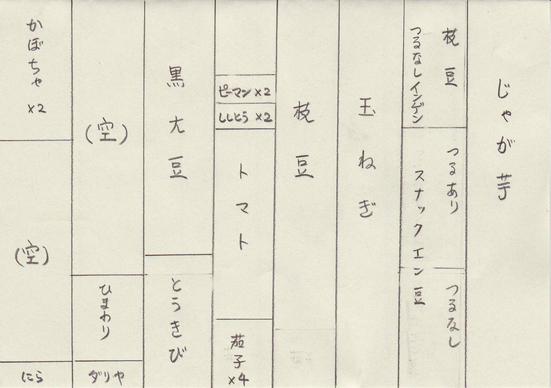 じゃが芋
枝豆
つるなしインゲン
つるあり
スナックエンド豆
つるなし
玉ねぎ
枝豆
ピーマン×2
ししとう×2
トマト
茄子×4
黒大豆
とうきび
(空)
ひまわり
ダリヤ
かぼちゃ×2
(空)
にら